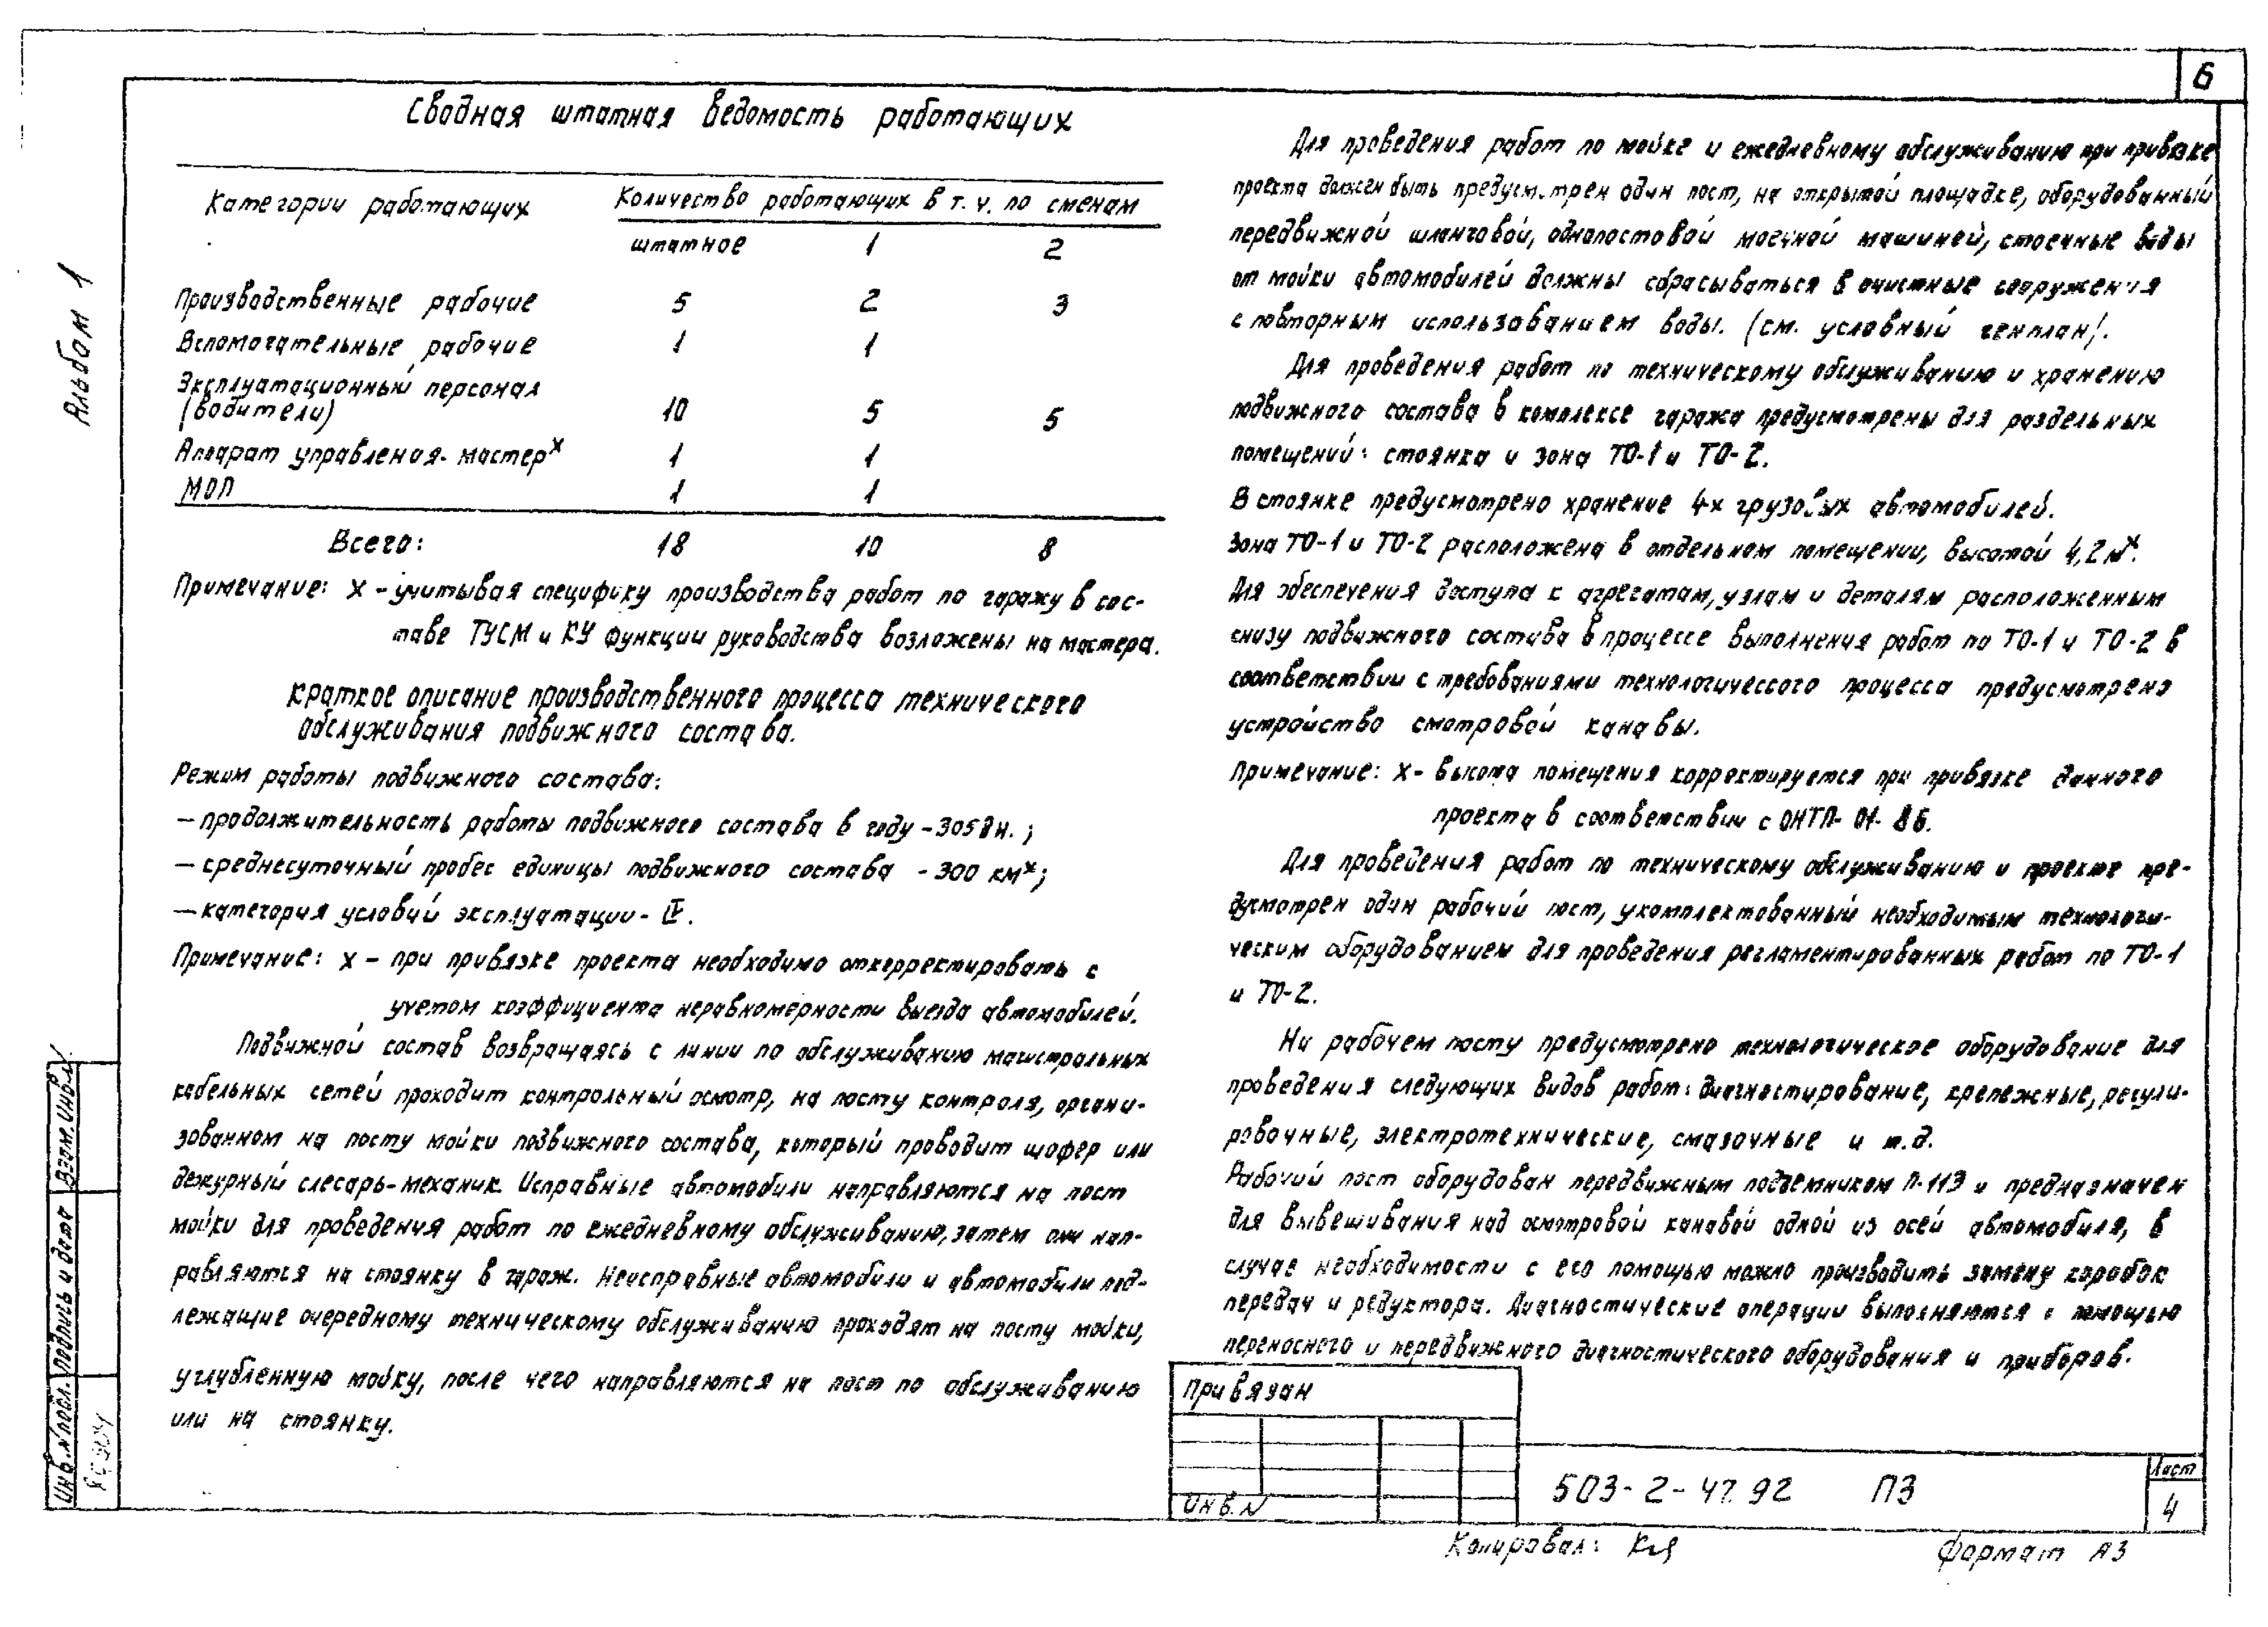 6
Альбом 1
Сводная штатная ведомость работающих
Категории работающих Количество работающих в т.ч. по сменам
штатное 1 2
Производственные рабочие 5 2 3
Вспомогательные рабочие 1 1
Эксплуатационный персонал
(водители) 10 5 5
Аппарат управления-мастер х 1 1
МОП 1 1
Всего: 18 10 8
Примечание: х - учитывая специфику производства работ по гаражу в сос-
таве ТУСМ и КУ функции руководства возложены на мастера.
Краткое описание производственного процесса технического
обслуживания подвижного состава.
Режим работы подвижного состава:
— продолжительность работы подвижного состава в году - 305 дн.;
— среднесуточный пробег единицы подвижного состава - 300 км х;
— категория условий эксплуатации - .
Примечание: х – при привязке проекта необходимо откорректировать с
учетом коэффициента неравномерности выезда автомобилей.
Подвижной состав возвращаясь с линии по обслуживанию магистральных
кабельных сетей проходит контрольный осмотр, на посту контроля, органи-
зованном на посту мойки подвижного состава, который проводит шофер или
дежурный слесарь-механик. Исправные автомобили направляются на пост
мойки для проведения работ по ежедневному обслуживанию, затем они нап-
равляются на стоянку в гараж. Неисправные автомобили и автомобили под-
лежащие очередному техническому обслуживанию проходят на посту мойки,
углубленную мойку, после чего направляются на пост по обслуживанию
или на стоянку.
Для проведения работ по мойке и ежедневному обслуживанию при привязке
проекта должен быть предусмотрен один пост, на открытой площадке, оборудованный
передвижной шланговой, однопостовой моечной машиной, стоечные воды
от мойки автомобилей должны сбрасываться в очистные сооружения
с повторным использованием воды. (см. условный генплан).
Для проведения работ по техническому обслуживанию и хранению
подвижного состава в комплексе гаража предусмотрены для раздельных
помещений: стоянка и зона ТО-1 и ТО-2.
В стоянке предусмотрено хранение 4-х грузовых автомобилей.
Зона ТО-1 и ТО-2 расположена в отдельном помещении, высотой 4,2 м х.
Для обеспечения доступа к агрегатам, узлам и деталям расположенным
снизу подвижного состава в процессе выполнения работ по ТО-1 и ТО-2 в
соответствии с требованиями технологического процесса предусмотрено
устройство смотровой канавы.
Примечание: х - высота помещения корректируется при привязке данного
проекта в соответствии с ОНТП-01-86.
Для проведения работ по техническому обслуживанию и проекте пре-
дусмотрен один рабочий пост, укомплектованный необходимым технологи-
ческим оборудованием для проведения регламентированных работ по ТО-1
и ТО-2.
На рабочем посту предусмотрено технологическое оборудование для
проведения следующих видов работ: диагностирование, крепежные, регули-
ровочные, электротехнические, смазочные и т.д.
Рабочий пост оборудован передвижным подъемником П-113 и предназначен
для вывешивания над осмотровой канавой одной из осей автомобиля, в
случае необходимости с его помощью можно производить замену коробок
передач и редуктора. Диагностические операции выполняются с помощью
переносного и передвижного диагностического оборудования и приборов.
Привязан
Инв. N
503-2-47.92 ПЗ
Лист
4
Копировал:
Формат А3
Взам. инв.
Подпись и дата
Инв. N подл.